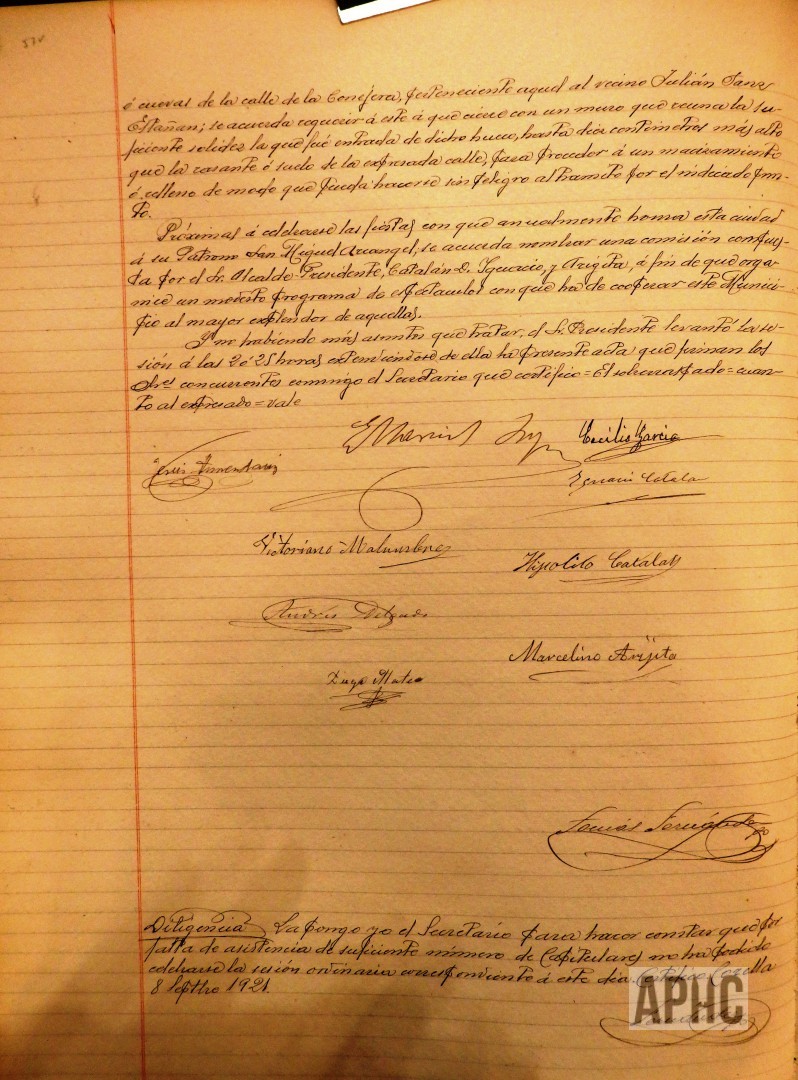 57v
ó cuevas de la calle de la Conejera, perteneciente aquel al vecino Julián Sanz
Estañan; se acuerda requerir á éste á que cierre con un muro que reuna la su-
ficiente solidez la que fué entrada de dicho hueco, hasta diez centímetros más alto
que la rasante ó suelo de la expresada calle, para proceder á un macizamiento
ó relleno de modo que pueda hacerse sin peligro al tránsito por el indicado pun-
to.
Próximas á celebrarse las fiestas con que anualmente honra esta ciudad
á su Patrono San Miguel Arcangel, se acuerda nombrar una comisión compues-
ta por el Sr. Alcalde-Presidente, Catalán D. Ignacio, y Arigita, á fin de que orga-
nice un modesto programa de espectaculos con que ha de cooperar este Munici-
pio al mayor explendor de aquellas.
Y no habiendo más asuntos que tratar, el Sr. Presidente levantó la se-
sión á las 20 y 25 horas extendiéndose de ella la presente acta que firman los
Sres. concurrentes conmigo el Secretario que certifico = El sobreraspado = cuan-
to al expresado = vale
Cecilio Garcia
Jesús Armendariz
Ignacio Catalan
Victoriano Malumbres
Hipolito Catalan
Andrés Delgado
Marcelino Arigita
Diego Mateo
Tomás Fernández
Diligencia La pongo yo el Secretario para hacer constar que por
falta de asistencia de suficiente número de Capitulares no ha podido
celebrarse la sesión ordinaria correspondiente á este día. Corella
8 Septbre 1921.
APHC